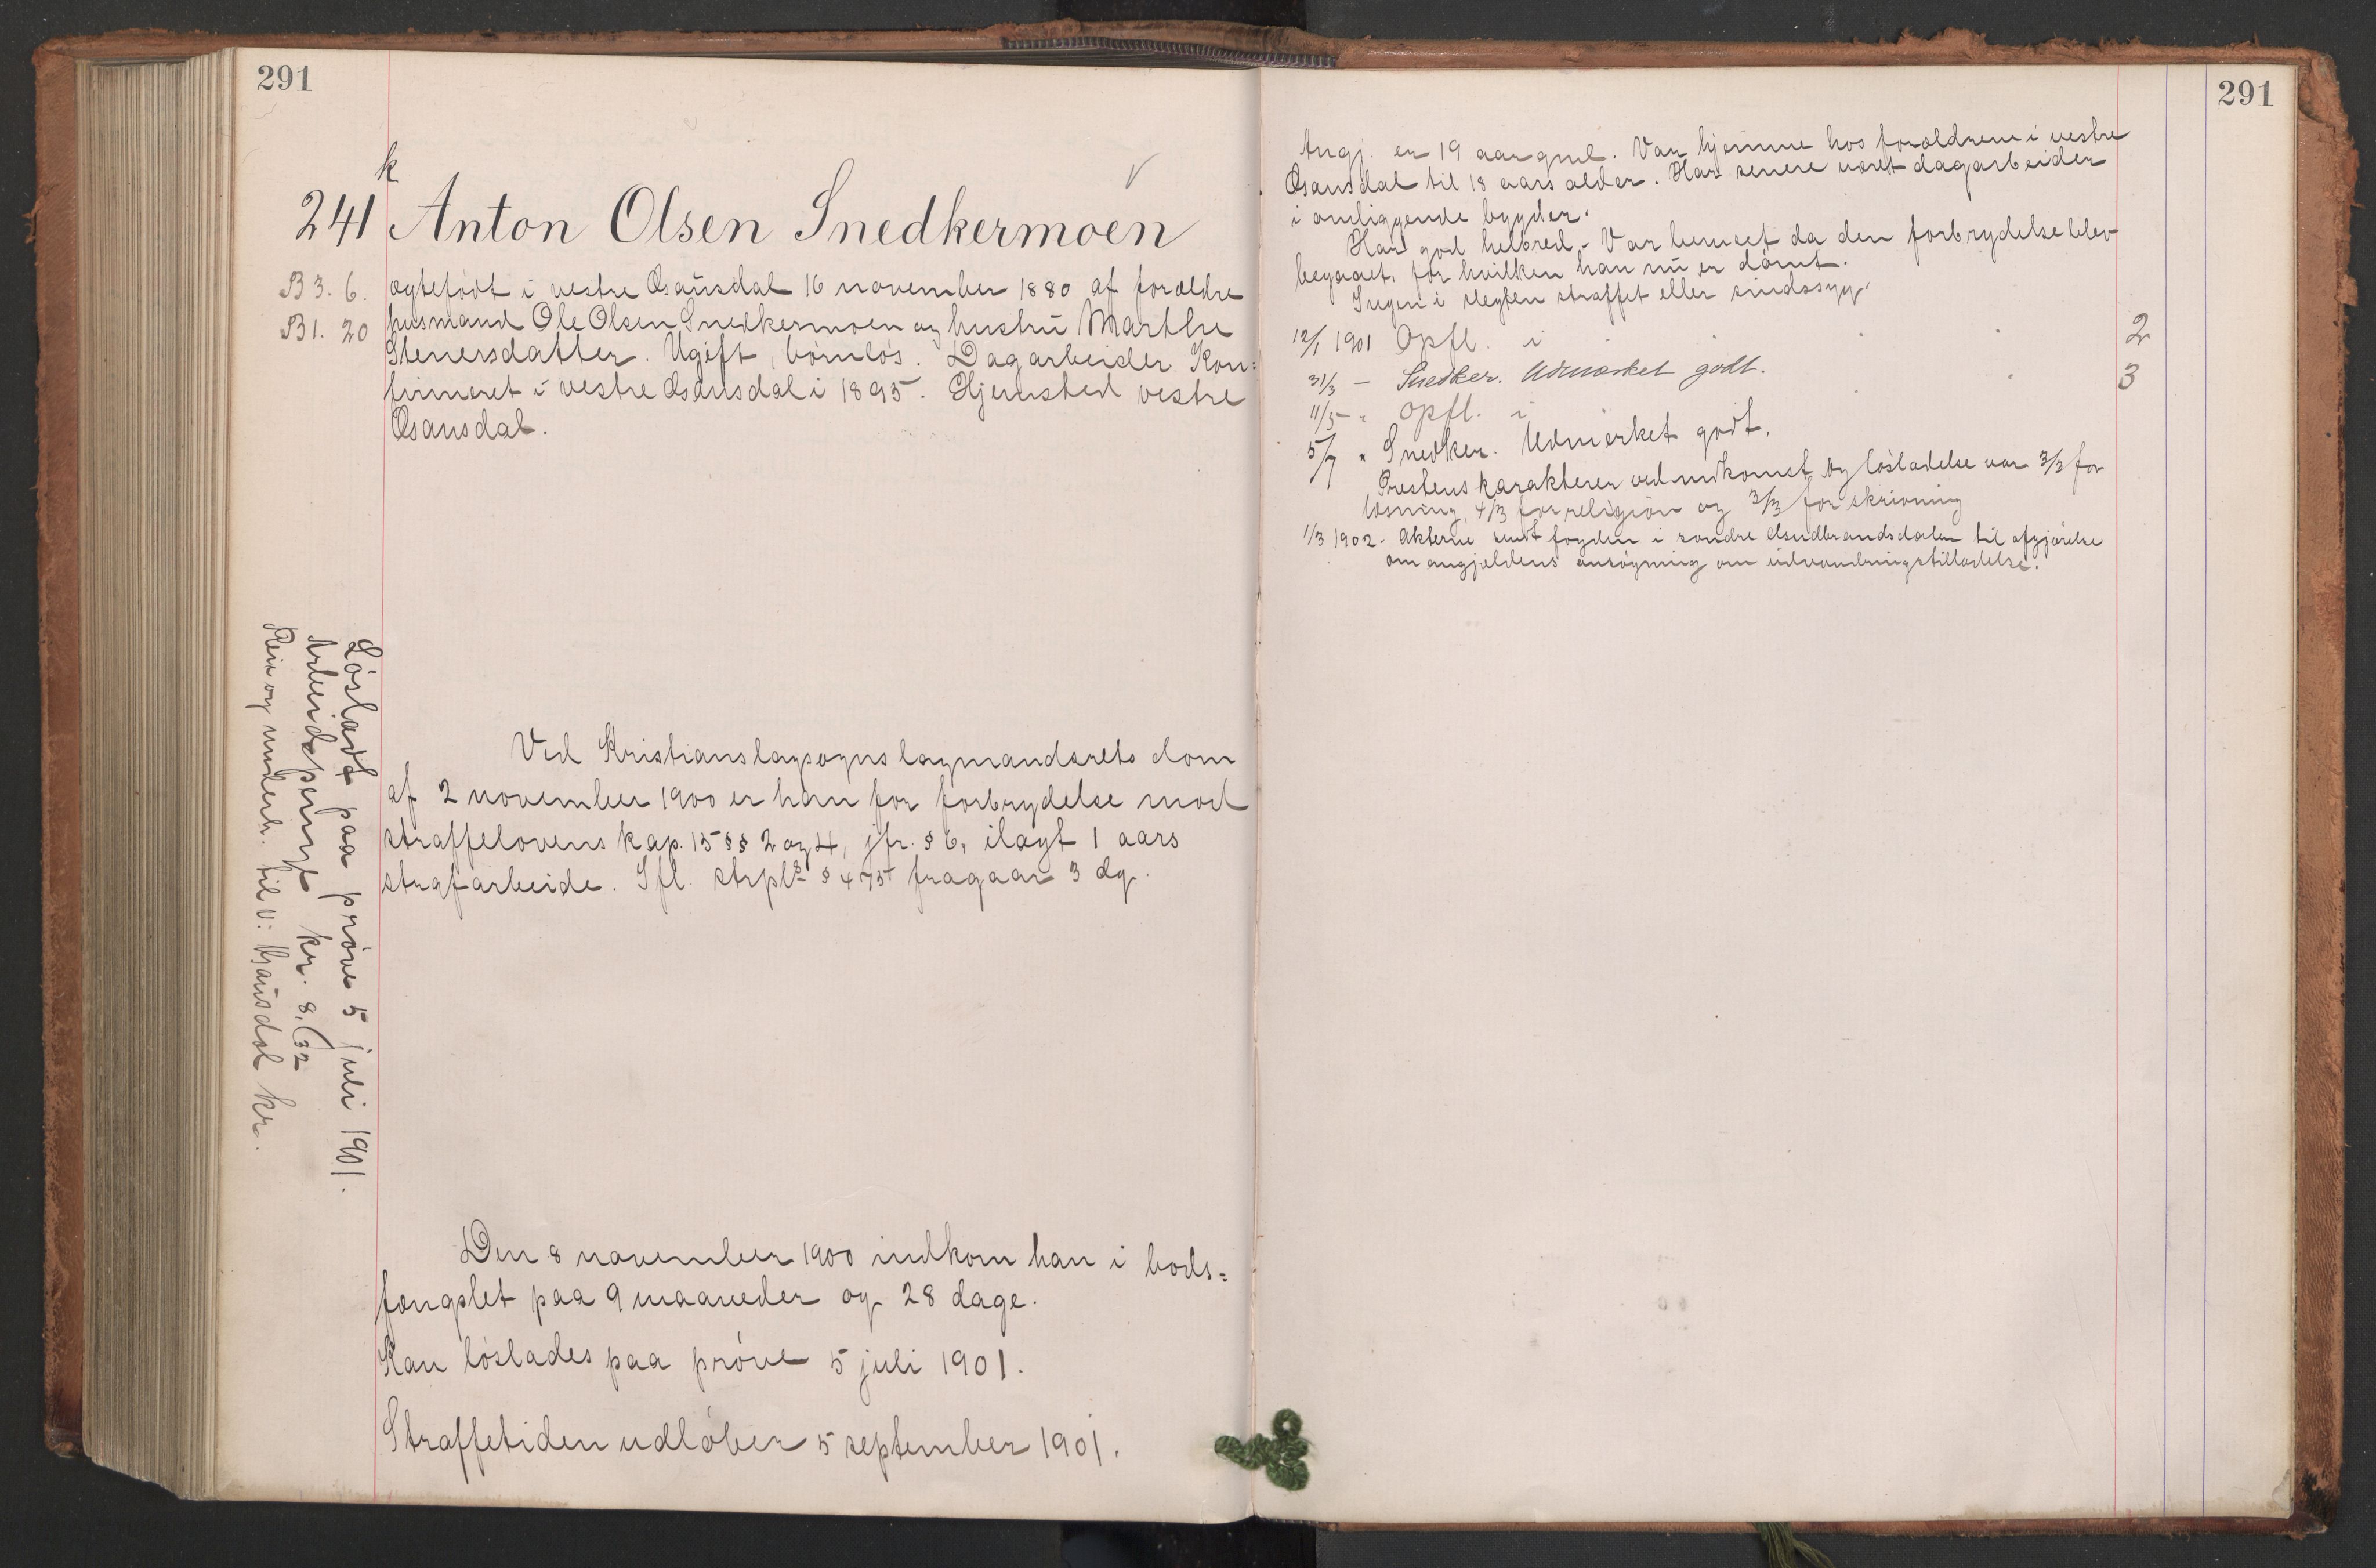 291
k
241 Anton Olsen Snedkermoen
B 3. 6. ægtefødt i vestre Gausdal 16 november 1880 af forældre
B 1. 20 husmand Ole Olsen Snedkermoen og hustru Marthe
Stenersdatter. Ugift, børnløs. Dagarbeider Kon=
firmeret i vestre Gausdal i 1895. Hjemsted vestre
Gausdal.
Løsladt paa prøve 5 juli 1901.
Arbeidspengt kr. 8,32
Rein og underh. til v: Gausdal kr.
Ved Kristians lagsogns lagmandsrets dom
af 2 november 1900 er han for forbrydelse mod
straffelovens kap. 15 §§ 2 og 4, jfr. § 6, ilagt 1 aars
strafarbeide. Ifl. strpl § 475 fragaar 3 dg.
Den 8 november 1900 indkom han i bods=
fængslet paa 9 maaneder og 28 dage.
Kan løslades paa prøve 5 juli 1901.
Straffetiden udløber 5 september 1901.
291
Angj. er 19 aar gml. Var hjemme hos forældrene i vestre
Gausdal til 18 aars alder. Har senere været dagarbeider
i omliggende bygder.
Har god helbred. Var beruset da den forbrydelse blev
begaaet, for hvilken han nu er dømt.
Ingen i slegten straffet eller sindssyg.
12/1 1901 Opfl. i 2
31/3 — Snedker. Udmærket godt. 3
11/5 " Opfl. i
5/7 " Snedker. Udmerket godt.
Prestens karakterer ved indkomst og løsladelse var 3/3 for
læsning, 4/3 for religion og 3/3 for skrivning
1/3 1902. Akterne sendt fogden i søndre Gudbrandsdalen til afgjørelse
om angjældens ansøgning om udvandringstilladelse.